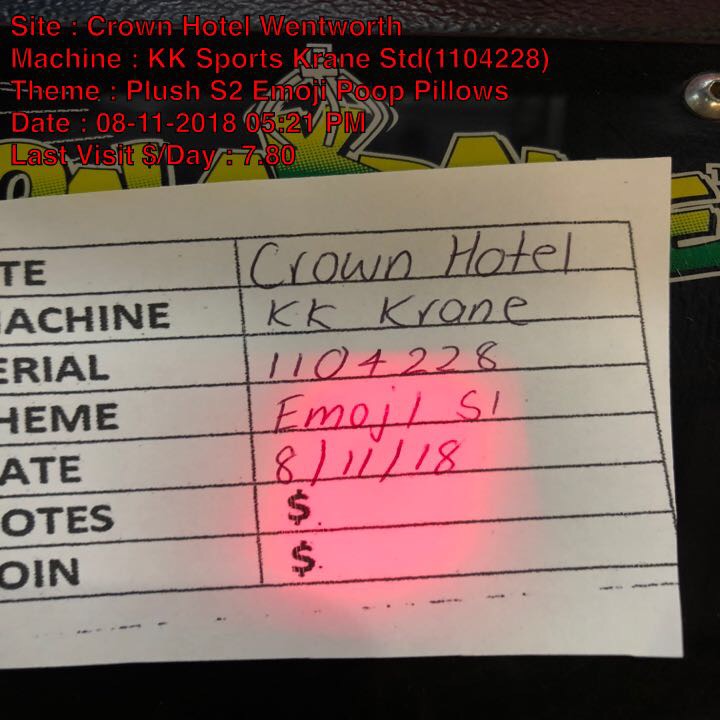 Site : Crown Hotel Wentworth
Machine : KK Sports Krane Std(1104228)
Theme : Plush S2 Emoji Poop Pillows
Date : 08-11-2018 05:21 PM
Last Visit $/Day : 7.80
TE Crown Hotel
MACHINE KK Krane
ERIAL 1104228
HEME Emoji S1
ATE 8/11/18
OTES $
OIN $